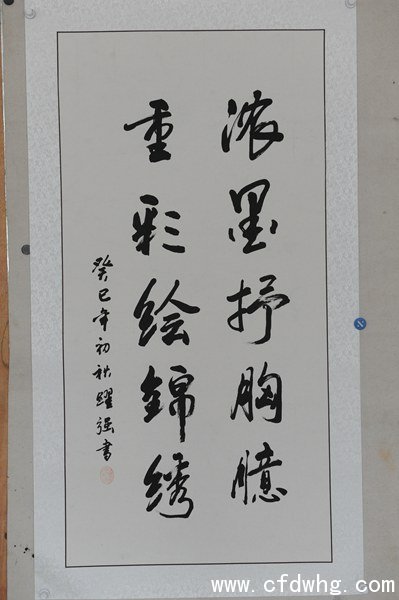 浓墨抒胸臆
重彩绘锦绣
癸巳年初秋躍强书
www.cfdwhg.com